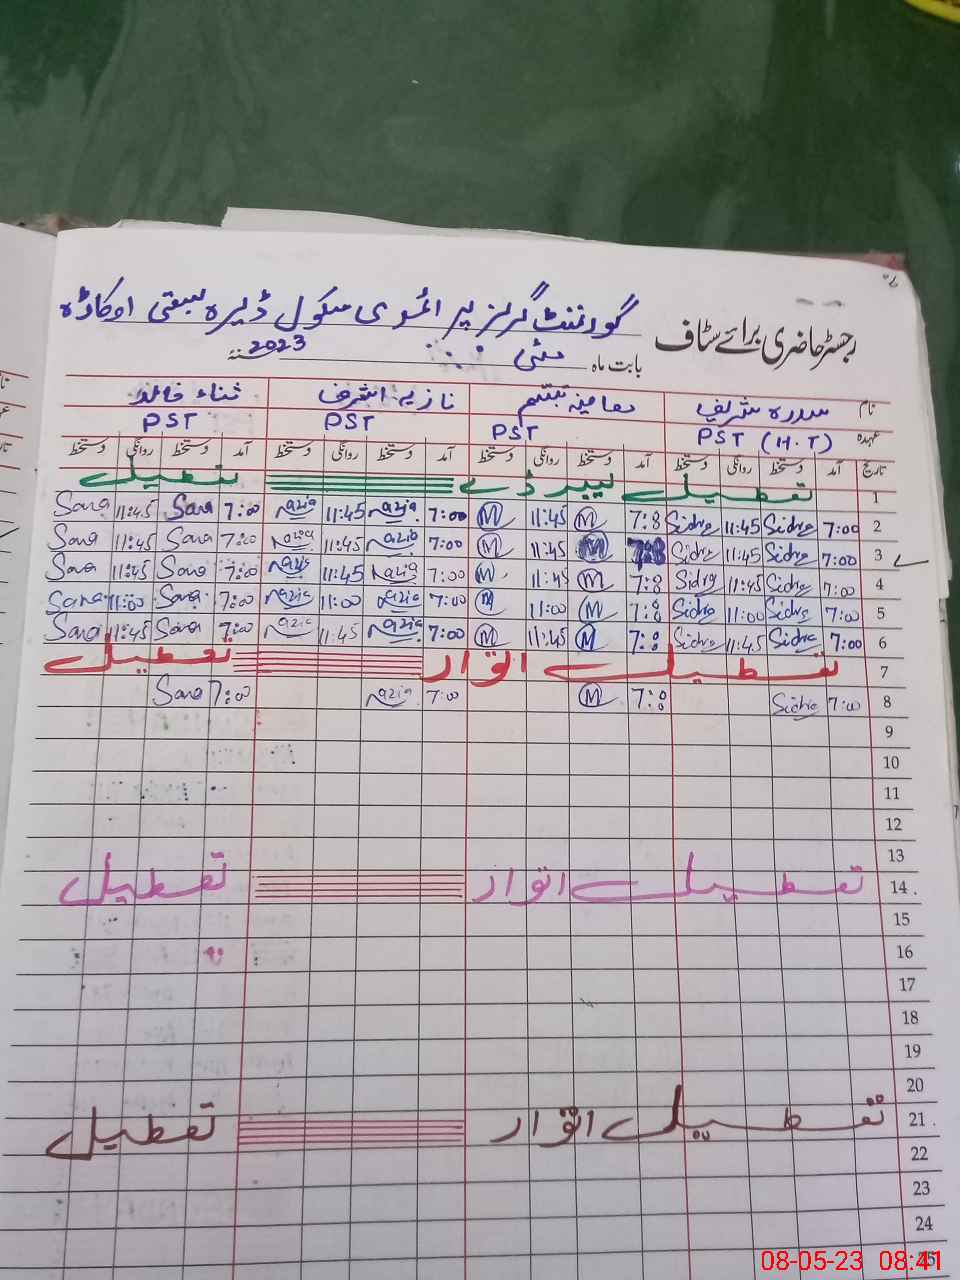 رجسٹر حاضری برائے سٹاف گورنمنٹ گرلز پرائمری سکول ڈیرہ سبقتی اوکاڑہ
بابت ماہ مئی 2023ء
نام سدرہ شریف تبسم نازیہ اشرف ثناء خالد
عہدہ PST (H.T) PST PST PST
تاریخ آمد دستخط روانگی دستخط آمد دستخط روانگی دستخط آمد دستخط روانگی دستخط آمد دستخط روانگی دستخط
1 تعطیل لیبر ڈے تعطیل
2 7:00 Sidra 11:45 Sidra 7:8 M 11:45 M 7:00 Nazia 11:45 Nazia 7:00 Sana 11:45 Sana
3 7:00 Sidra 11:45 Sidra 7:8 M 11:45 M 7:00 Nazia 11:45 Nazia 7:00 Sana 11:45 Sana
4 7:00 Sidra 11:45 Sidra 7:8 M 11:45 M 7:00 Nazia 11:45 Nazia 7:00 Sana 11:45 Sana
5 7:00 Sidra 11:00 Sidra 7:8 M 11:00 M 7:00 Nazia 11:00 Nazia 7:00 Sana 11:00 Sana
6 7:00 Sidra 11:45 Sidra 7:8 M 11:45 M 7:00 Nazia 11:45 Nazia 7:00 Sana 11:45 Sana
7 تعطیل اتوار تعطیل
8 7:00 Sidra 7:8 M 7:00 Nazia 7:00 Sana
9
10
11
12
13
14 تعطیل اتوار تعطیل
15
16
17
18
19
20
21 تعطیل اتوار تعطیل
22
23
24
25
08-05-23 08:41